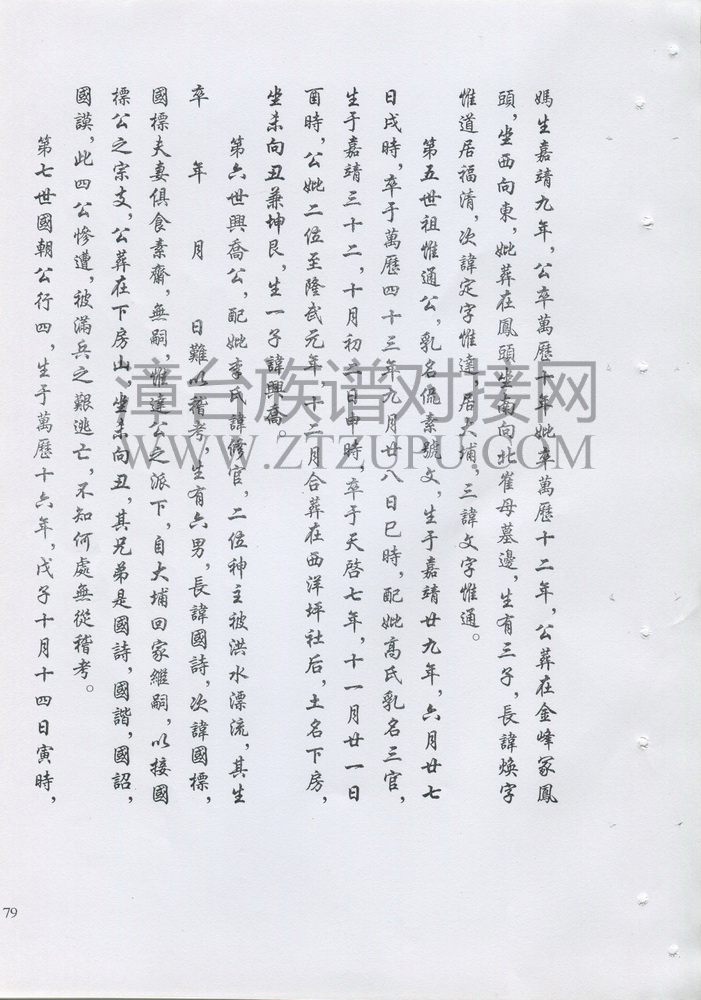 媽生嘉靖九年，公卒萬歷十年妣卒萬歷十二年，公葬在金峰冢鳳
頭，坐西向東，妣葬在鳳頭坐南向北崔母墓邊，生有三子，長諱煥字
惟道居福清，次諱定字惟達，居大埔，三諱文字惟通。
第五世祖惟通公，乳名侃素號文，生于嘉靖廿九年，六月廿七
日戌時，卒于萬歷四十三年九月廿八日巳時，配妣高氏乳名三官，
生于嘉靖三十二，十月初二日申時，卒于天啓七年，十一月廿一日
酉時，公妣二位至隆武元年十二月合葬在西洋坪社后，土名下房，
坐未向丑兼坤艮，生一子諱興喬。
第六世興喬公，配妣李氏諱修官，二位神主被洪水漂流，其生
卒 年 月 日難以稽考，生有六男，長諱國詩，次諱國標，
國標夫妻俱食素齋，無嗣，惟達公之派下，自大埔回家繼嗣，以接國
標公之宗支，公葬在下房山，坐未向丑，其兄弟是國詩，國諧，國詔，
國謨，此四公慘遭，被滿兵之艱逃亡，不知何處無從稽考。
第七世國朝公行四，生于萬歷十六年，戊子十月十四日寅時，
79
漳台族谱对接网
WWW.ZTZUPU.COM